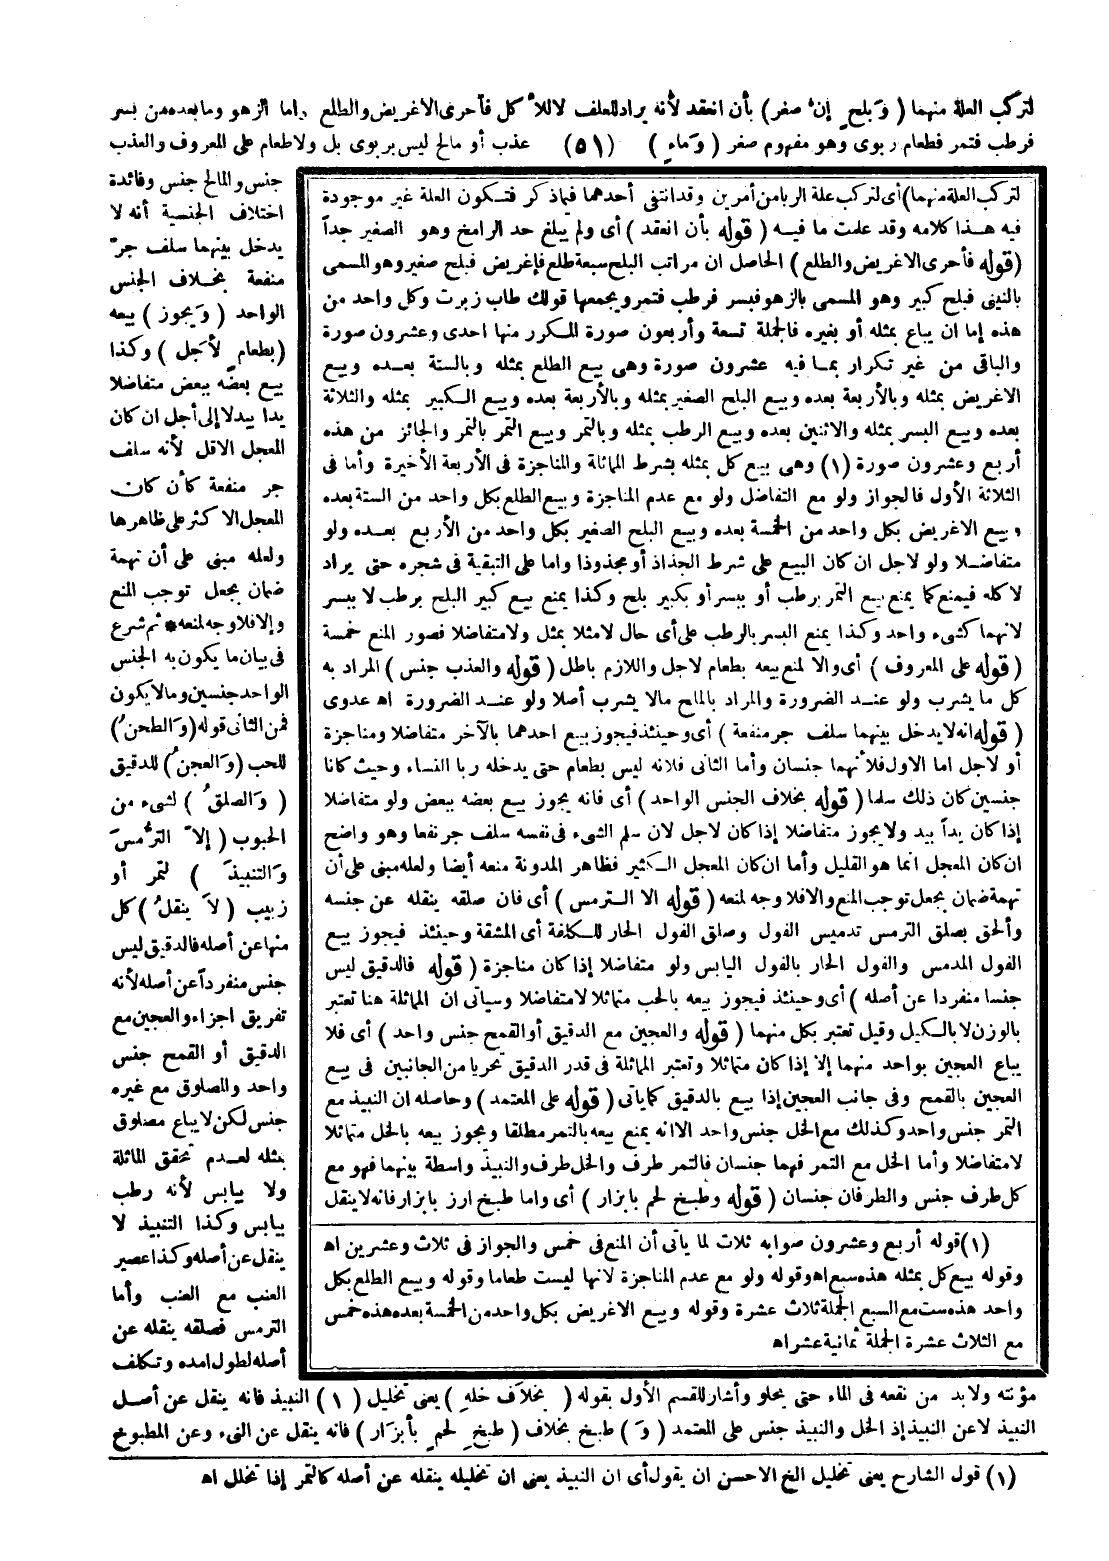 لتركب العلة منهما ( وَبلح ٍ إن ْ صغر ) بأن انعقد لأنه يراد للعلف لا للأكل فأحرى الاغريض والطلع واما الزهو وما بعده من بسر
فرطب فتمر فطعام ربوى وهو مفهوم صغر ( وَماءٍ ) (٥١) عذب أو مالح ليس بربوى بل ولا طعام على المعروف والعذب
جنس والمالح جنس وفائدة
اختلاف الجنسية أنه لا
يدخل بينهما سلف جرّ
منفعة بخلاف الجنس
الواحد ( وَيجوز ) بيعه
(بطعامٍ لأجل ) وكذا
بيع بعضه ببعض متفاضلا
يدا بيد لا إلى أجل ان كان
المعجل الاقل لأنه سلف
جر منفعة كأن كان
المعجل الاكثر على ظاهرها
ولعله مبنى على أن تهمة
ضمان بجعل توجب المنع
وإلا فلا وجه لمنعه * ثم شرع
فى بيان ما يكون به الجنس
الواحد جنسين وما لا يكون
فمن الثانى قوله (وَالطحنُ)
للحب (وَالعجنُ) للدقيق
( وَالصلقُ ) لشىء من
الحبوب ( إلاّ الترْمسَ
وَالتنبيذَ ) لتمر أو
زبيب ( لاَ ينقلُ ) كل
منها عن أصله فالدقيق ليس
جنس منفرداً عن أصله لأنه
تفريق اجزاء والعجين مع
الدقيق أو القمح جنس
واحد والمصلوق مع غيره
جنس لكن لا يباع مصلوق
بمثله لعدم تحقق المماثلة
ولا بيابس لأنه رطب
بيابس وكذا التنبيذ لا
ينقل عن أصله وكذا عصير
العنب مع العنب وأما
الترمس فصلقه ينقله عن
أصله لطول امده وتكلف
لتركب العلة منهما) أى لتركب علة الربا من أمرين وقد انتفى أحدهما فيما ذكر فتكون العلة غير موجودة
فيه هذا كلامه وقد علمت ما فيه ( قوله بأن انعقد ) أى ولم يبلغ حد الرامخ وهو الصغير جداً
(قوله فأحرى الاغريض والطلع ) الحاصل ان مراتب البلح سبعة طلع فإغريض فبلح صغير وهو المسمى
بالنينى فبلح كبير وهو المسمى بالزهو فبسر فرطب فتمر ويجمعها قولك طاب زبرت وكل واحد من
هذه إما ان يباع بمثله أو بغيره فالجملة تسعة وأربعون صورة المكرر منها احدى وعشرون صورة
والباقى من غير تكرار بما فيه عشرون صورة وهى بيع الطلع بمثله وبالستة بعده وبيع
الاغريض بمثله وبالأربعة بعده وبيع البلح الصغير بمثله وبالأربعة بعده وبيع الكبير بمثله والثلاثة
بعده وبيع البسر بمثله والاثنين بعده وبيع الرطب بمثله وبالتمر وبيع التمر بالتمر والجائز من هذه
أربع وعشرون صورة (١) وهى بيع كل بمثله بشرط المماثلة والمناجزة فى الأربعة الأخيرة وأما فى
الثلاثة الأول فالجواز ولو مع التفاضل ولو مع عدم المناجزة وبيع الطلع بكل واحد من الستة بعده
وبيع الاغريض بكل واحد من الخمسة بعده وبيع البلح الصغير بكل واحد من الأربع بعده ولو
متفاضلا ولو لاجل ان كان البيع على شرط الجذاذ أو مجذوذا واما على التبقية فى شجره حتى يراد
لاكله فيمنع كما يمنع بيع التمر برطب أو ببسر أو بكبير بلح وكذا يمنع بيع كبير البلح برطب لا ببسر
لانهما كشىء واحد وكذا يمنع البسر بالرطب على أى حال لا مثلا بمثل ولا متفاضلا فصور المنع خمسة
( قوله على المعروف ) أى والا لمنع بيعه بطعام لاجل واللازم باطل ( قوله والعذب جنس ) المراد به
كل ما يشرب ولو عند الضرورة والمراد بالمالح مالا يشرب أصلا ولو عند الضرورة اه عدوى
( قوله انه لا يدخل بينهما سلف جر منفعة ) أى وحينئذ فيجوز بيع احدهما بالآخر متفاضلا ومناجزة
أو لاجل اما الاول فلأنهما جنسان وأما الثانى فلانه ليس بطعام حتى يدخله ربا النساء وحيث كانا
جنسين كان ذلك سلما ( قوله بخلاف الجنس الواحد ) أى فانه يجوز بيع بعضه ببعض ولو متفاضلا
إذا كان يداً بيد ولا يجوز متفاضلا إذا كان لاجل لان سلم الشىء فى نفسه سلف جر نفعا وهو واضح
ان كان المعجل انما هو القليل وأما ان كان المعجل الكثير فظاهر المدونة منعه أيضا ولعله مبنى على أن
تهمة ضمان بجعل توجب المنع والا فلا وجه لمنعه ( قوله الا الترمس ) أى فان صلقه ينقله عن جنسه
وألحق بصلق الترمس تدميس الفول وصلق الفول الحار للكلفة أى المشقة وحينئذ فيجوز بيع
الفول المدمس والفول الحار بالفول اليابس ولو متفاضلا إذا كان مناجزة ( قوله فالدقيق ليس
جنسا منفردا عن أصله ) أى وحينئذ فيجوز بيعه بالحب متماثلا لا متفاضلا وسيأتى ان المماثلة هنا تعتبر
بالوزن لا بالكيل وقيل تعتبر بكل منهما ( قوله والعجين مع الدقيق أو القمح جنس واحد ) أى فلا
يباع العجين بواحد منهما إلا إذا كان متماثلا وتعتبر المماثلة فى قدر الدقيق تحريا من الجانبين فى بيع
العجين بالقمح وفى جانب العجين إذا بيع بالدقيق كما يأتى ( قوله على المعتمد ) وحاصله ان النبيذ مع
التمر جنس واحد وكذلك مع الخل جنس واحد الا انه يمنع بيعه بالتمر مطلقا ويجوز بيعه بالخل متماثلا
لا متفاضلا وأما الخل مع التمر فهما جنسان فالتمر طرف والخل طرف والنبيذ واسطة بينهما فهو مع
كل طرف جنس والطرفان جنسان ( قوله وطبخ لحم بابزار ) أى واما طبخ ارز بابزار فانه لا ينقل
(١) قوله أربع وعشرون صوابه ثلاث لما يأتى أن المنع فى خمس والجواز فى ثلاث وعشرين اه
وقوله بيع كل بمثله هذه سبع اه وقوله ولو مع عدم المناجزة لانها ليست طعاما وقوله وبيع الطلع بكل
واحد هذه ست مع السبع الجملة ثلاث عشرة وقوله وبيع الاغريض بكل واحد من الخمسة بعده هذه خمس
مع الثلاث عشرة الجملة ثمانية عشر اه
مؤنته ولابد من نقعه فى الماء حتى يحلو وأشار للقسم الأول بقوله ( بخلاَف خلهِ ) يعنى تخليل (١) النبيذ فانه ينقل عن أصل
النبيذ لا عن النبيذ إذ الخل والنبيذ جنس على المعتمد ( وَ ) طبخ بخلاف ( طبخ ِ لحم ٍ بأبزَار ) فانه ينقل عن النىء وعن المطبوخ
(١) قول الشارح يعنى تخليل الخ الاحسن ان يقول أى ان النبيذ يعنى ان تخليله ينقله عن أصله كالتمر إذا تخلل اه